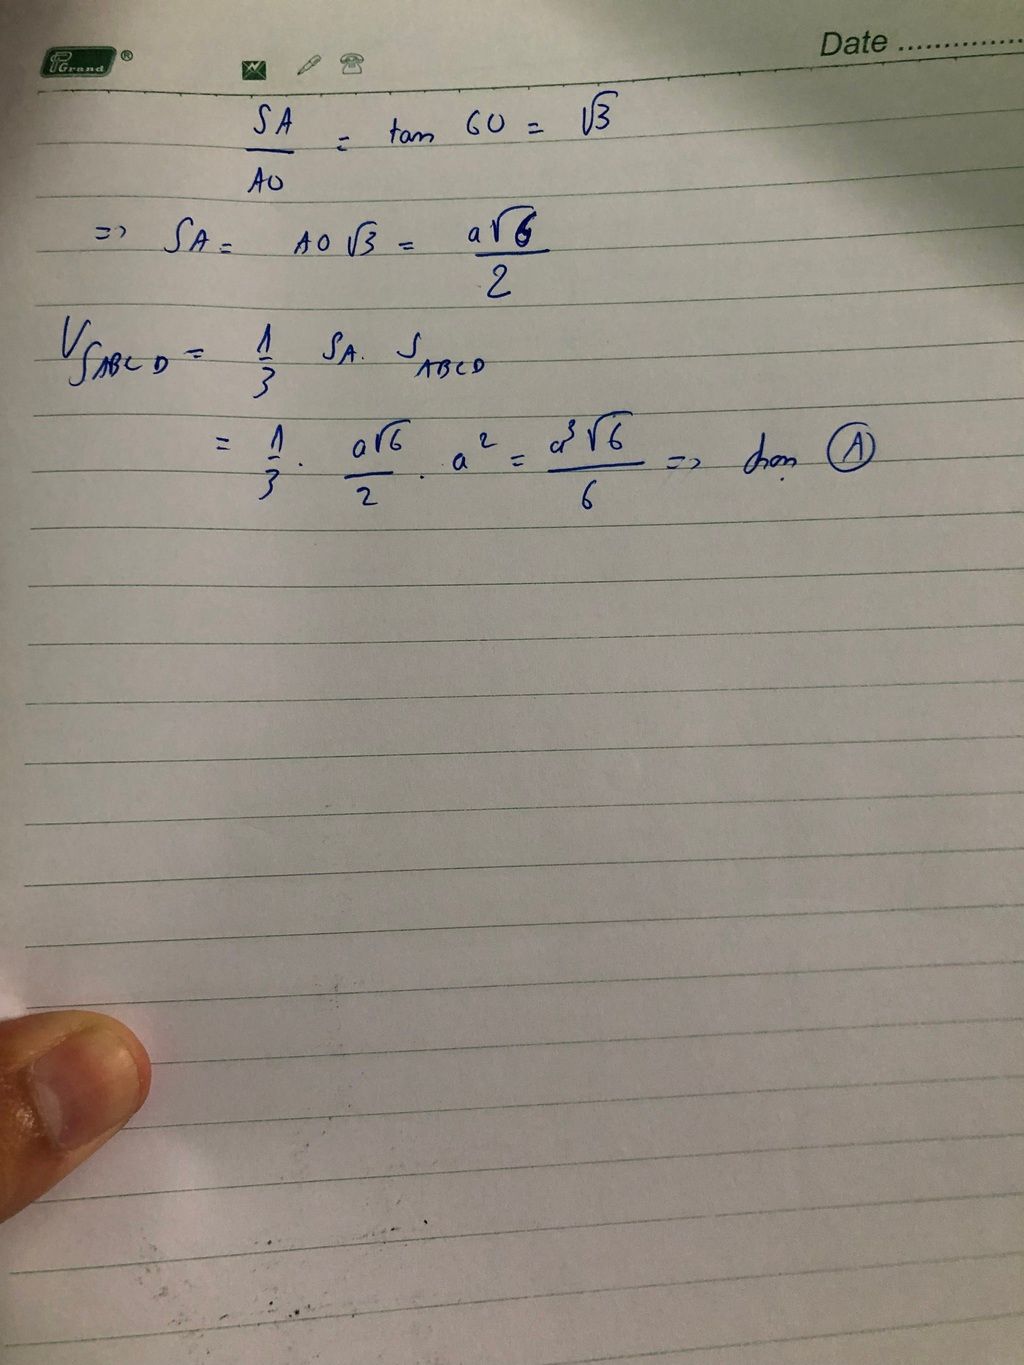 PGrand ®
Date ..............
SA/AO = tan 60 = √3
=> SA = AO √3 = a√6/2
V_SABCD = 1/3 SA. S_ABCD
= 1/3 . a√6/2 . a² = a³√6/6 => chọn Ⓐ